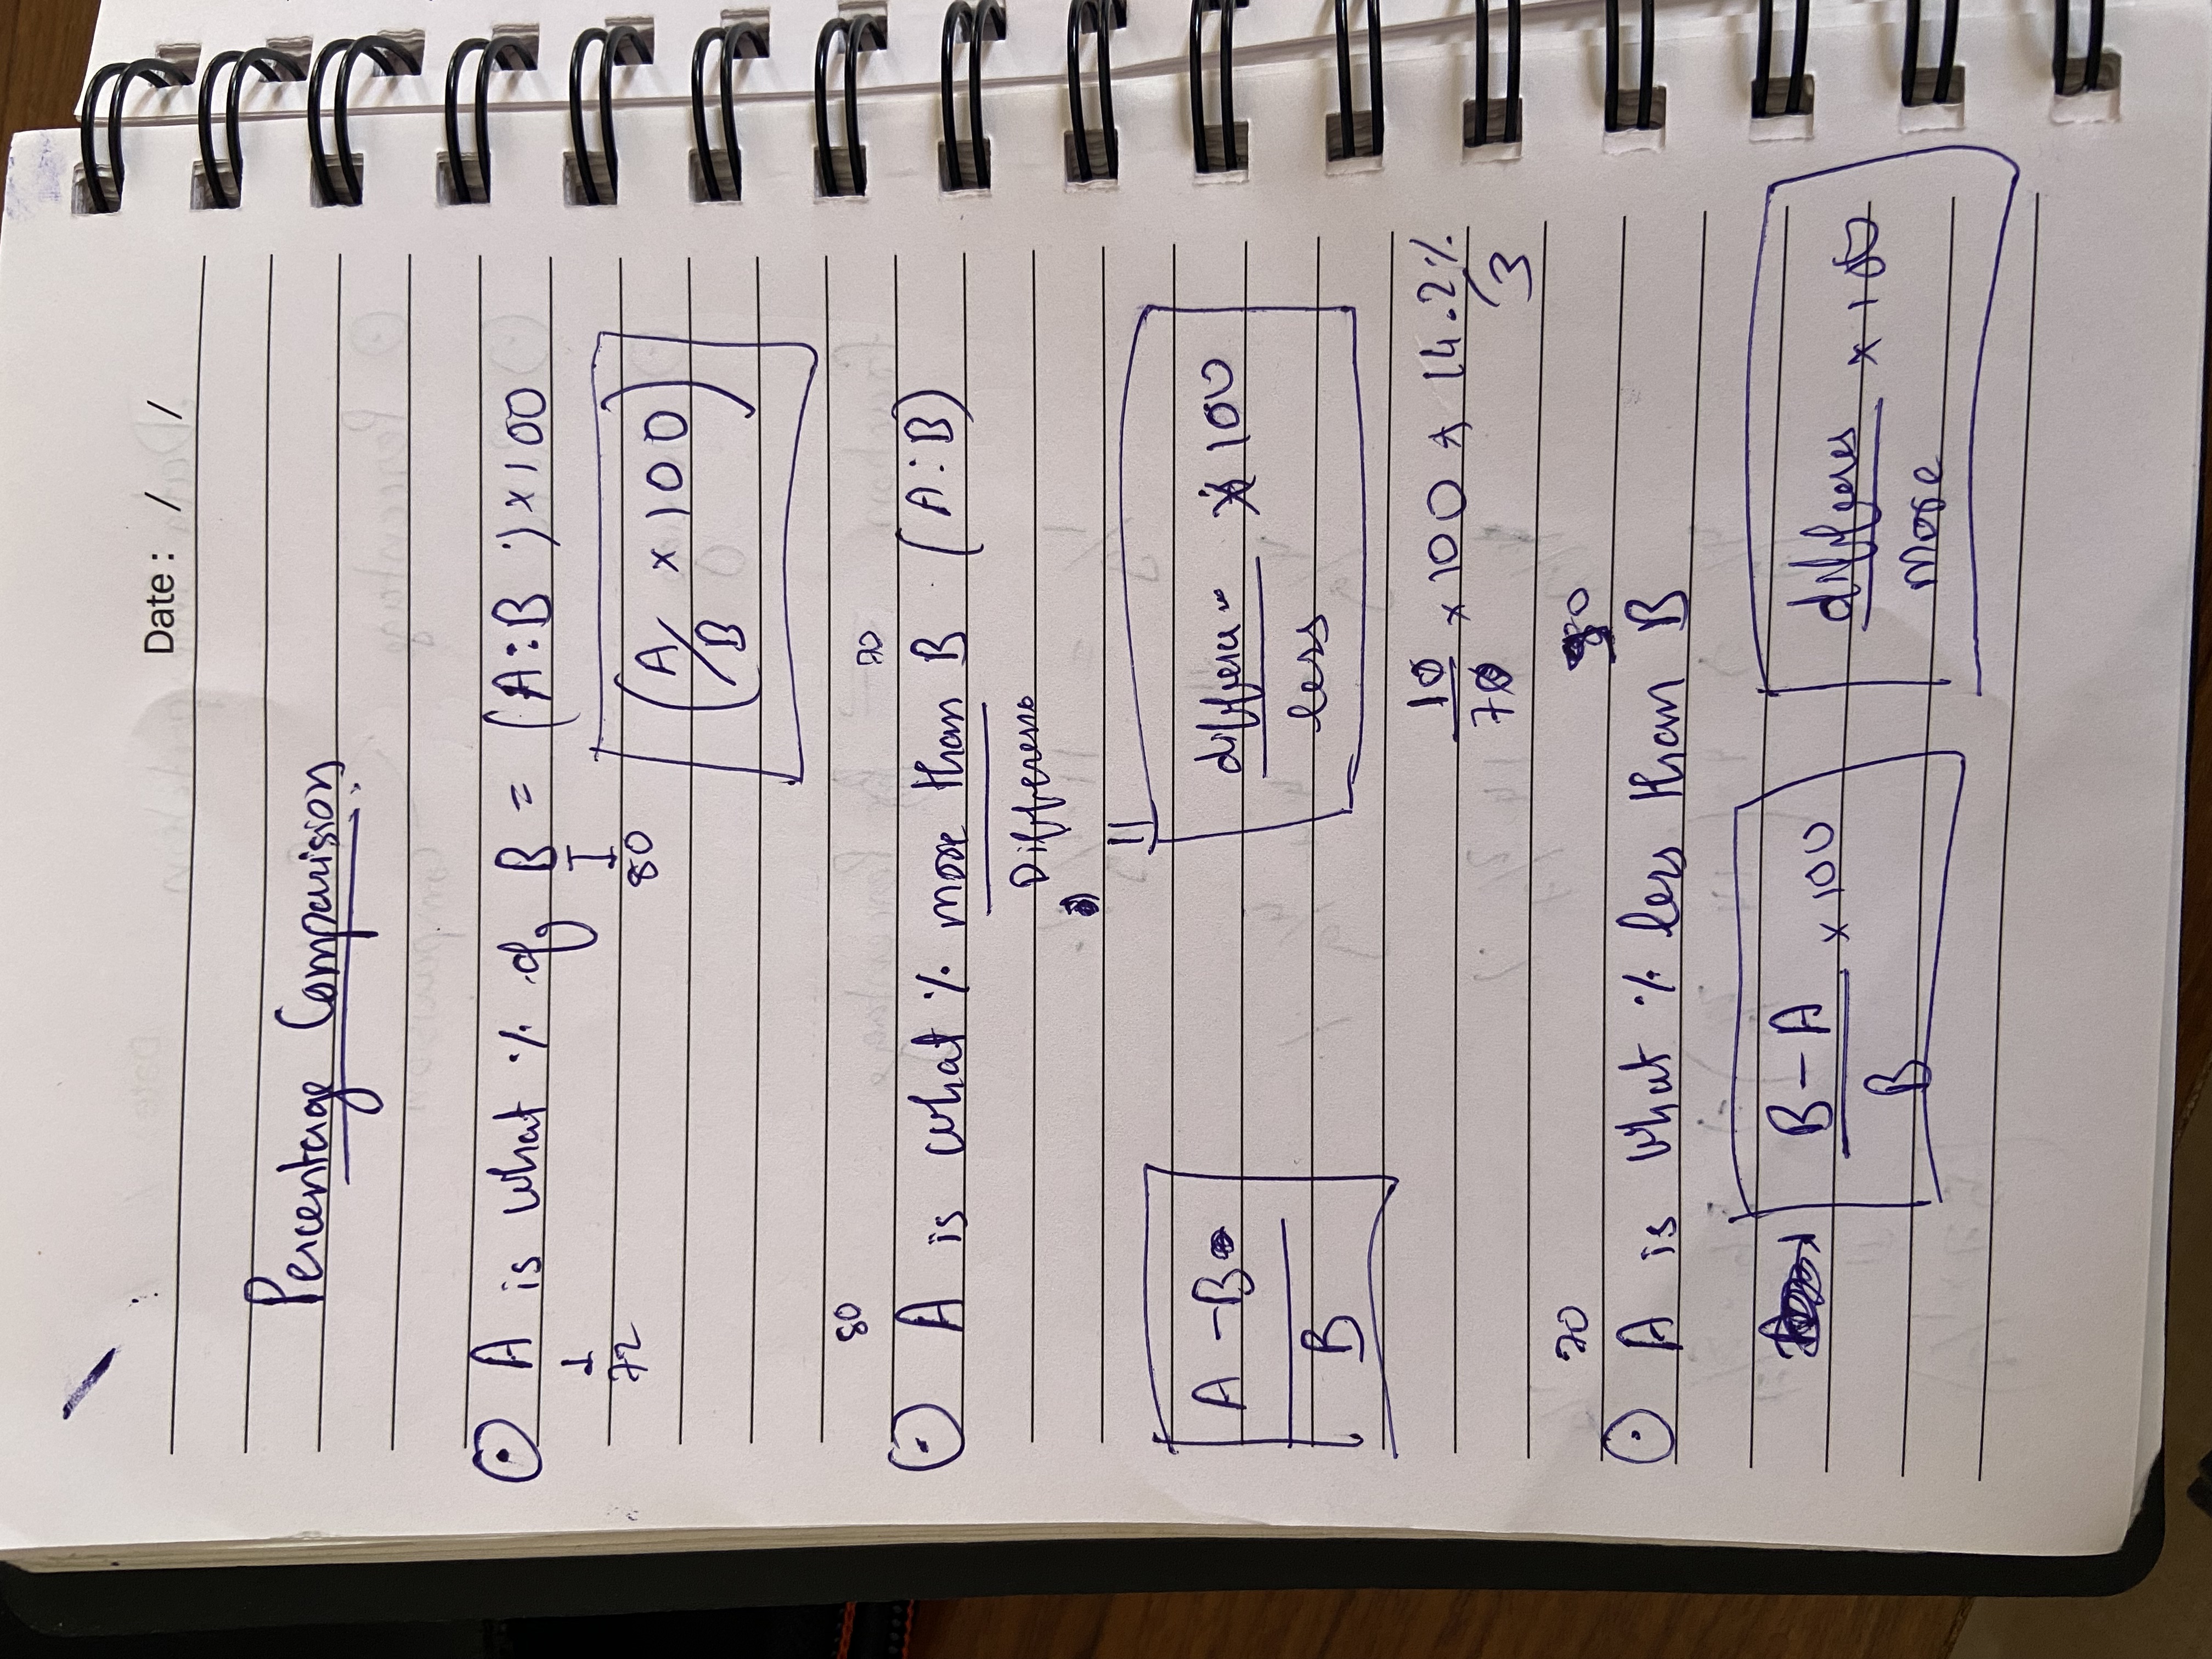 Date : / /
Percentage Comparision
A is what % of B = (A:B) × 100
72 80
(A/B × 100)
80 70
A is what % more than B (A:B)
Differenc
A - B
B
difference × 100
less
10/70 × 100 14.2%
3
70 80
A is what % less than B
B - A
B × 100
× 100
more